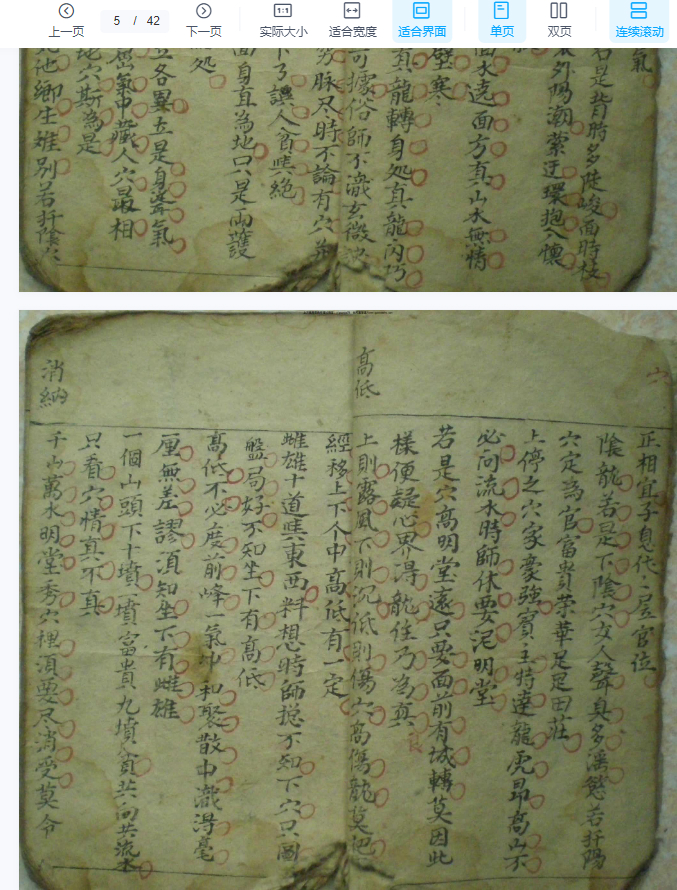 上一页
5 / 42
下一页
1:1
实际大小
适合宽度
适合界面
单页
双页
连续滚动
氣
若是背時多陡峻面時枝
外陽潮縈迂環抱入懷
面水遠面方真山水無情
壁寒
真龍轉身処真龍內巧
可據俗師不識玄微
脉尺時不論有穴
下了讓人貧與絕
面身直為地只是兩護
処
立各異立是身聳氣
氣中藏人穴最相
穴斯為是
他鄉生雄別若扦陰穴
穴
正相宜子息代〻居官位
陰龍若是下陰穴女人聲臭多淫慾若扦陽
穴定為官富貴榮華足足田莊
上停之穴家豪強賓主特達龍虎昂高山不
必问流水時師休要泥明堂
若是穴高明堂遠只要面前有城轉莫因此
樣便疑心界得龍住巧為真
高低
上則露風下則沉低則傷穴高傷龍莫把
經移上下个中高低有一定
雌雄十道與東西料想時師揔不知下穴只圖
盤局好不知坐下有高低
高低不必度前峰一氣冲和聚散中識得毫
厘無差謬須知坐下有雌雄
一個山頭下十墳一墳富貴九墳貧共向共流水
只看穴情真不真
消納
千山萬水明堂秀穴裡須要尺消受莫令